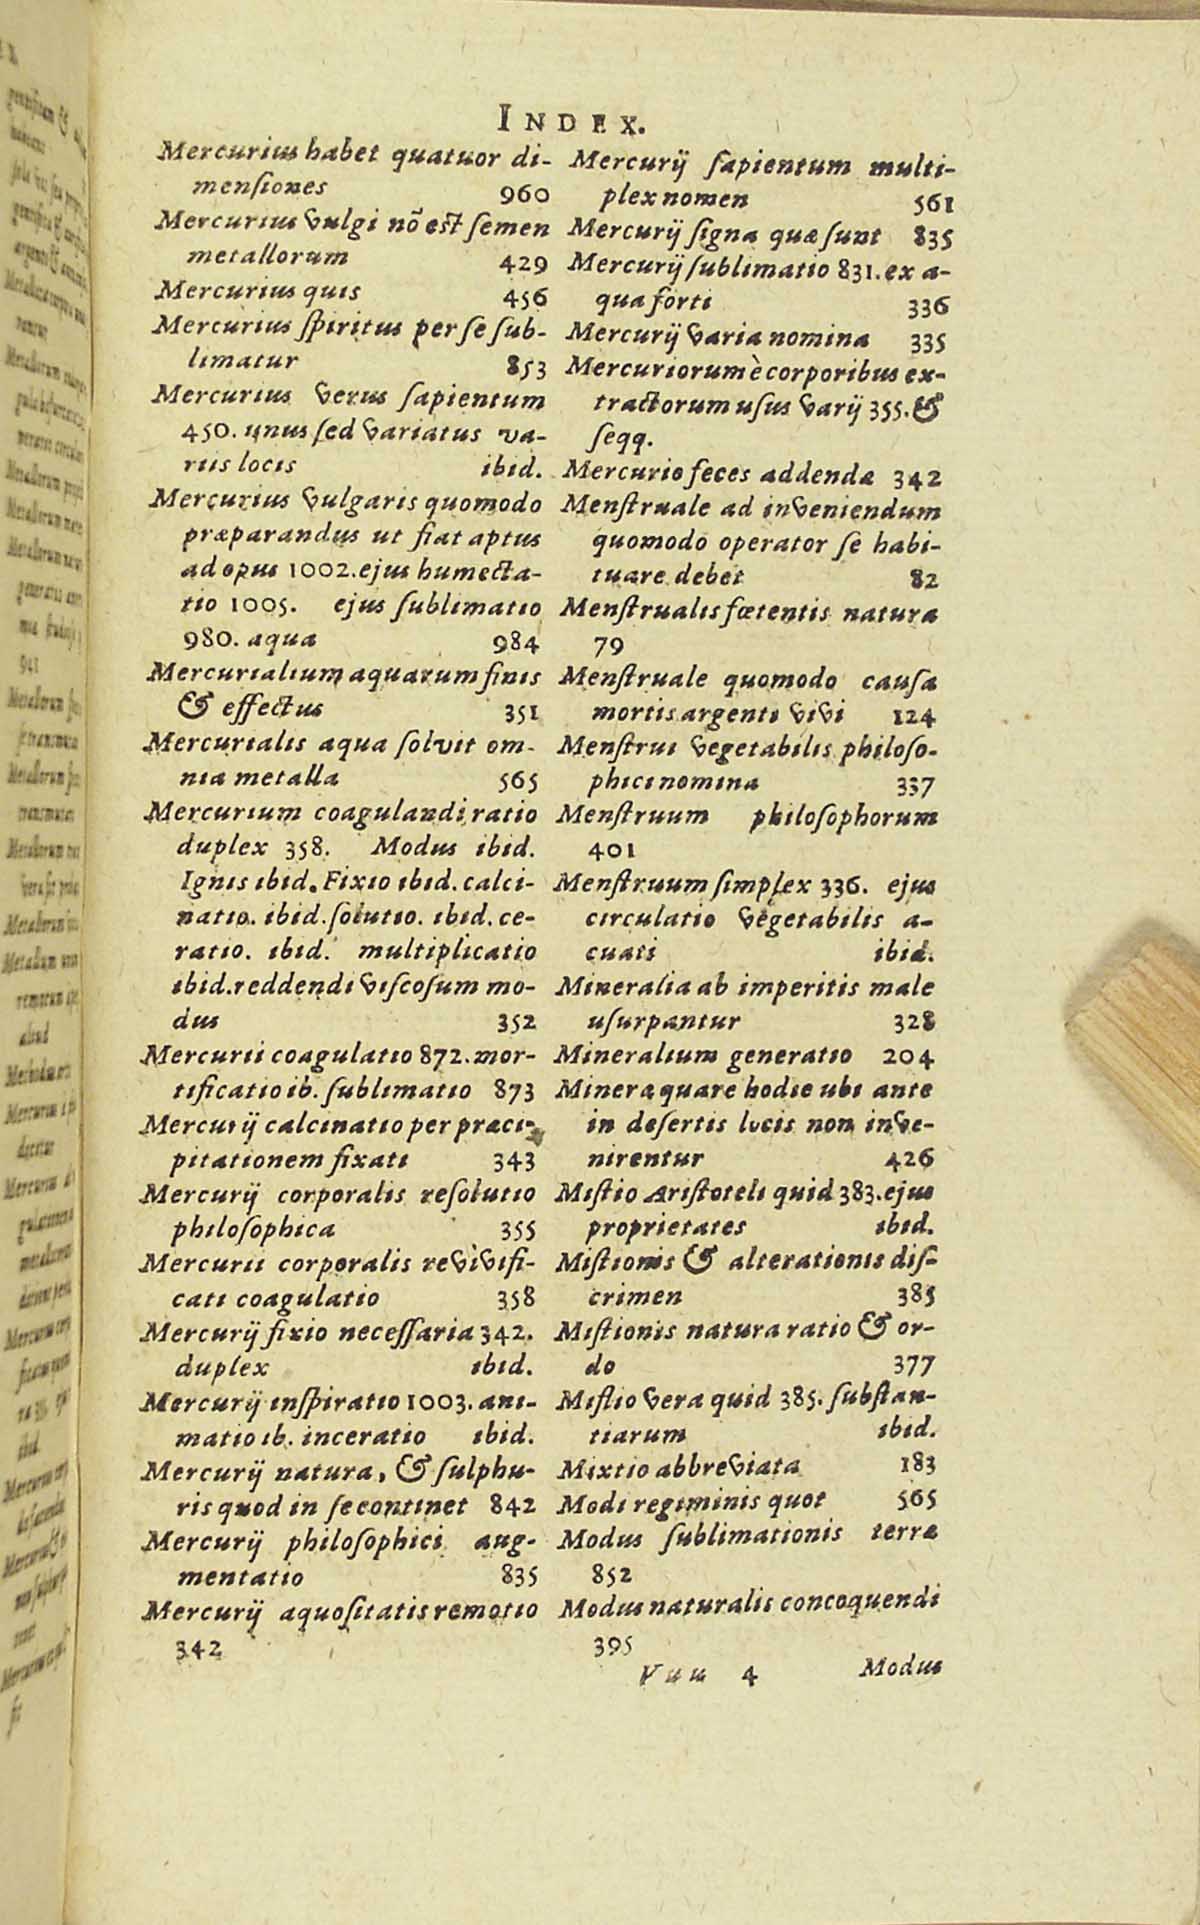 INDEX.
Mercurius habet quatuor di-
mensiones 960
Mercurius vulgi nõ est semen
metallorum 429
Mercurius quis 456
Mercurius spiritus per se sub-
limatur 853
Mercurius verus sapientum
450. unus sed variatus va-
riis locis ibid.
Mercurius vulgaris quomodo
præparandus ut fiat aptus
ad opus 1002. ejus humecta-
tio 1005. ejus sublimatio
980. aqua 984
Mercurialium aquarum finis
& effectus 351
Mercurialis aqua solvit om-
nia metalla 565
Mercurium coagulandi ratio
duplex 358. Modus ibid.
Ignis ibid. Fixio ibid. calci-
natio. ibid. solutio. ibid. ce-
ratio. ibid. multiplicatio
ibid. reddendi viscosum mo-
dus 352
Mercurii coagulatio 872. mor-
tificatio ib. sublimatio 873
Mercurij calcinatio per præci-
pitationem fixati 343
Mercurij corporalis resolutio
philosophica 355
Mercurii corporalis revivifi-
cati coagulatio 358
Mercurij fixio necessaria 342.
duplex ibid.
Mercurij inspiratio 1003. ani-
matio ib. inceratio ibid.
Mercurij natura, & sulphu-
ris quod in se continet 842
Mercurij philosophici aug-
mentatio 835
Mercurij aquositatis remotio
342
Mercurij sapientum multi-
plex nomen 561
Mercurij signa quæ sunt 835
Mercurij sublimatio 831. ex a-
qua forti 336
Mercurij varia nomina 335
Mercuriorum è corporibus ex-
tractorum usus varij 355. &
seqq.
Mercurio feces addendæ 342
Menstruale ad inveniendum
quomodo operator se habi-
tuare debet 82
Menstrualis fœtentis natura
79
Menstruale quomodo causa
mortis argenti vivi 124
Menstrui vegetabilis philoso-
phici nomina 337
Menstruum philosophorum
401
Menstruum simplex 336. ejus
circulatio vegetabilis a-
cuati ibid.
Mineralia ab imperitis male
usurpantur 328
Mineralium generatio 204
Minera quare hodie ubi ante
in desertis locis non inve-
nirentur 426
Mistio Aristoteli quid 383. ejus
proprietates ibid.
Mistionis & alterationis dis-
crimen 385
Mistionis natura ratio & or-
do 377
Mistio vera quid 385. substan-
tiarum ibid.
Mixtio abbreviata 183
Modi regiminis quot 565
Modus sublimationis terræ
852
Modus naturalis concoquendi
395
Vuu 4 Modus